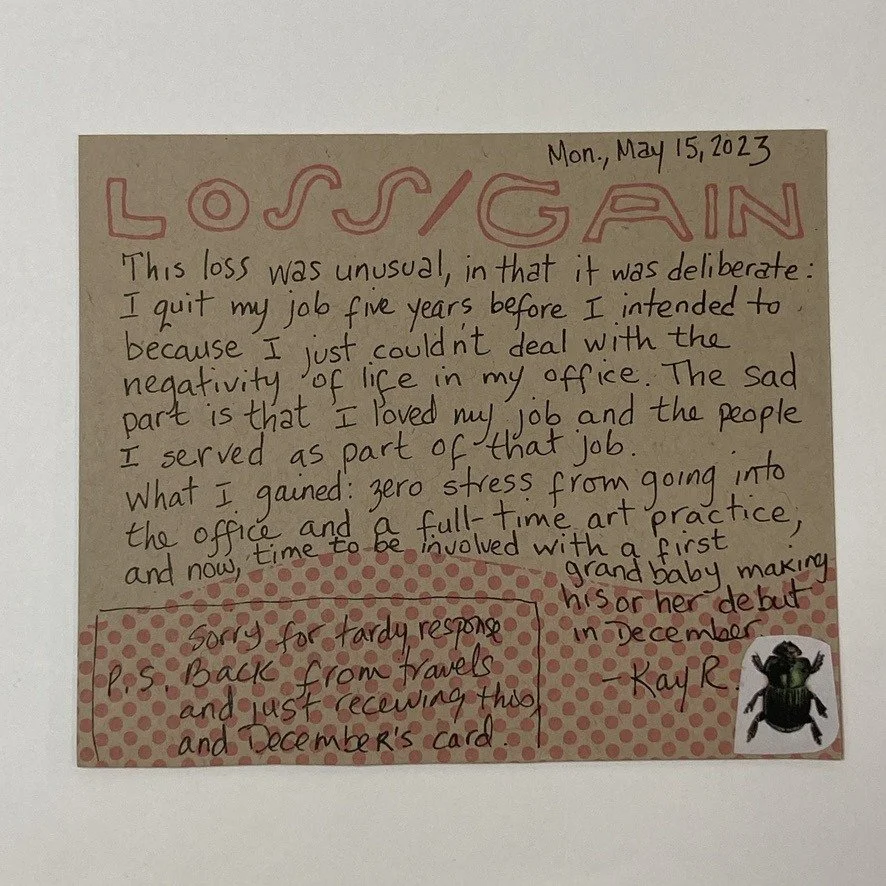 Mon., May 15, 2023
LOSS/GAIN
This loss was unusual, in that it was deliberate:
I quit my job five years before I intended to
because I just couldn't deal with the
negativity of life in my office. The sad
part is that I loved my job and the people
I served as part of that job.
What I gained: zero stress from going into
the office and a full-time art practice,
and now, time to be involved with a first
grandbaby making
his or her debut
in December.
– Kay R.
Sorry for tardy response
P.S. Back from travels
and just receiving this,
and December's card.